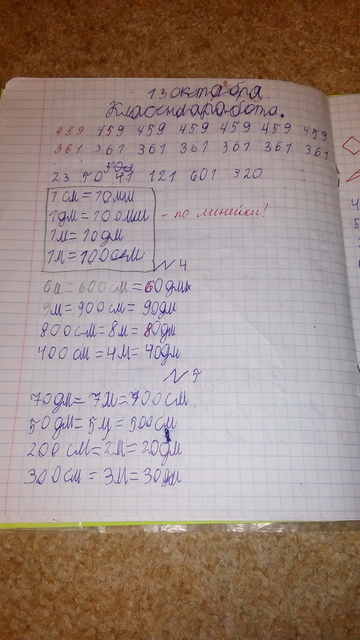 13 октабра
Класснаработа.
459 459 459 459 459 459 459
361 361 361 361 361 361 361
23 50 41 121 601 320
1см = 10мм
1дм = 100мм
1м = 10дм
1м = 100см
- по линейки!
№ 4
6м = 600см = 60дм
9м = 900см = 90дм
800см = 8м = 80дм
400см = 4м = 40дм
№ 5
70дм = 7м = 700см
50дм = 5м = 500см
200см = 2м = 20дм
300см = 3м = 30дм